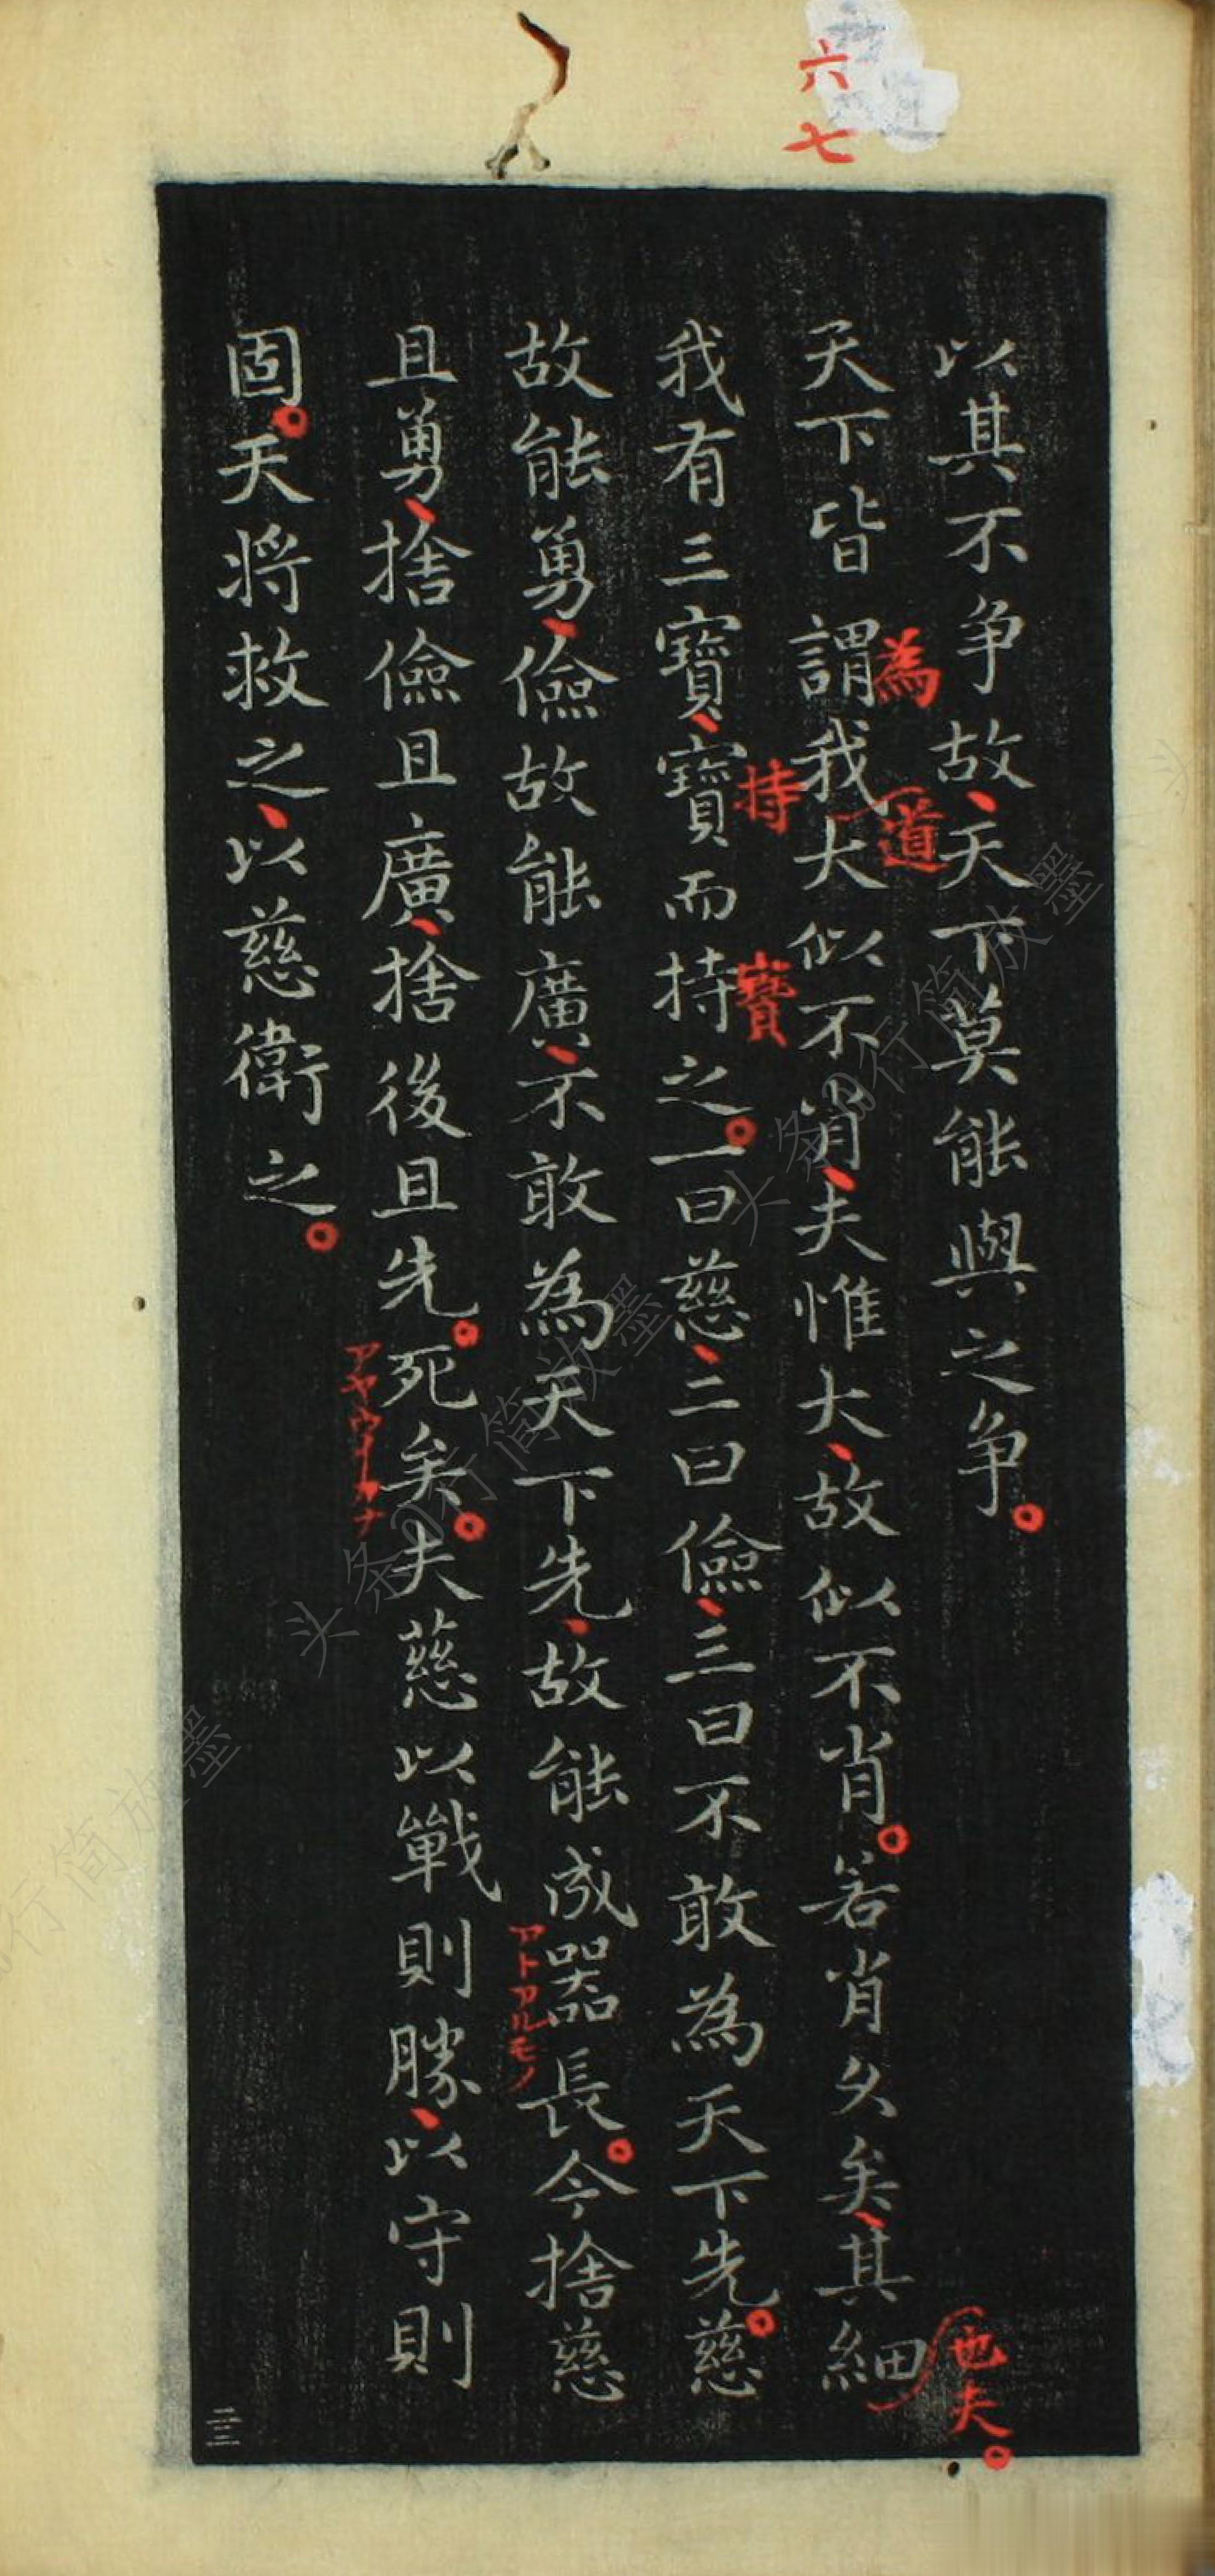 六七
以其不争故天下莫能與之争
天下皆謂我大似不肖夫惟大故似不肖若肖久矣其細
為
道
也夫
我有三寶寶而持之一曰慈二曰儉三曰不敢為天下先慈
持
寶
故能勇儉故能廣不敢為天下先故能成器長今捨慈
アトアルモノ
且勇捨儉且廣捨後且先死矣夫慈以戰則勝以守則
固天将救之以慈衛之
三三
头条@行简放墨
头条@行简放墨
行简放墨